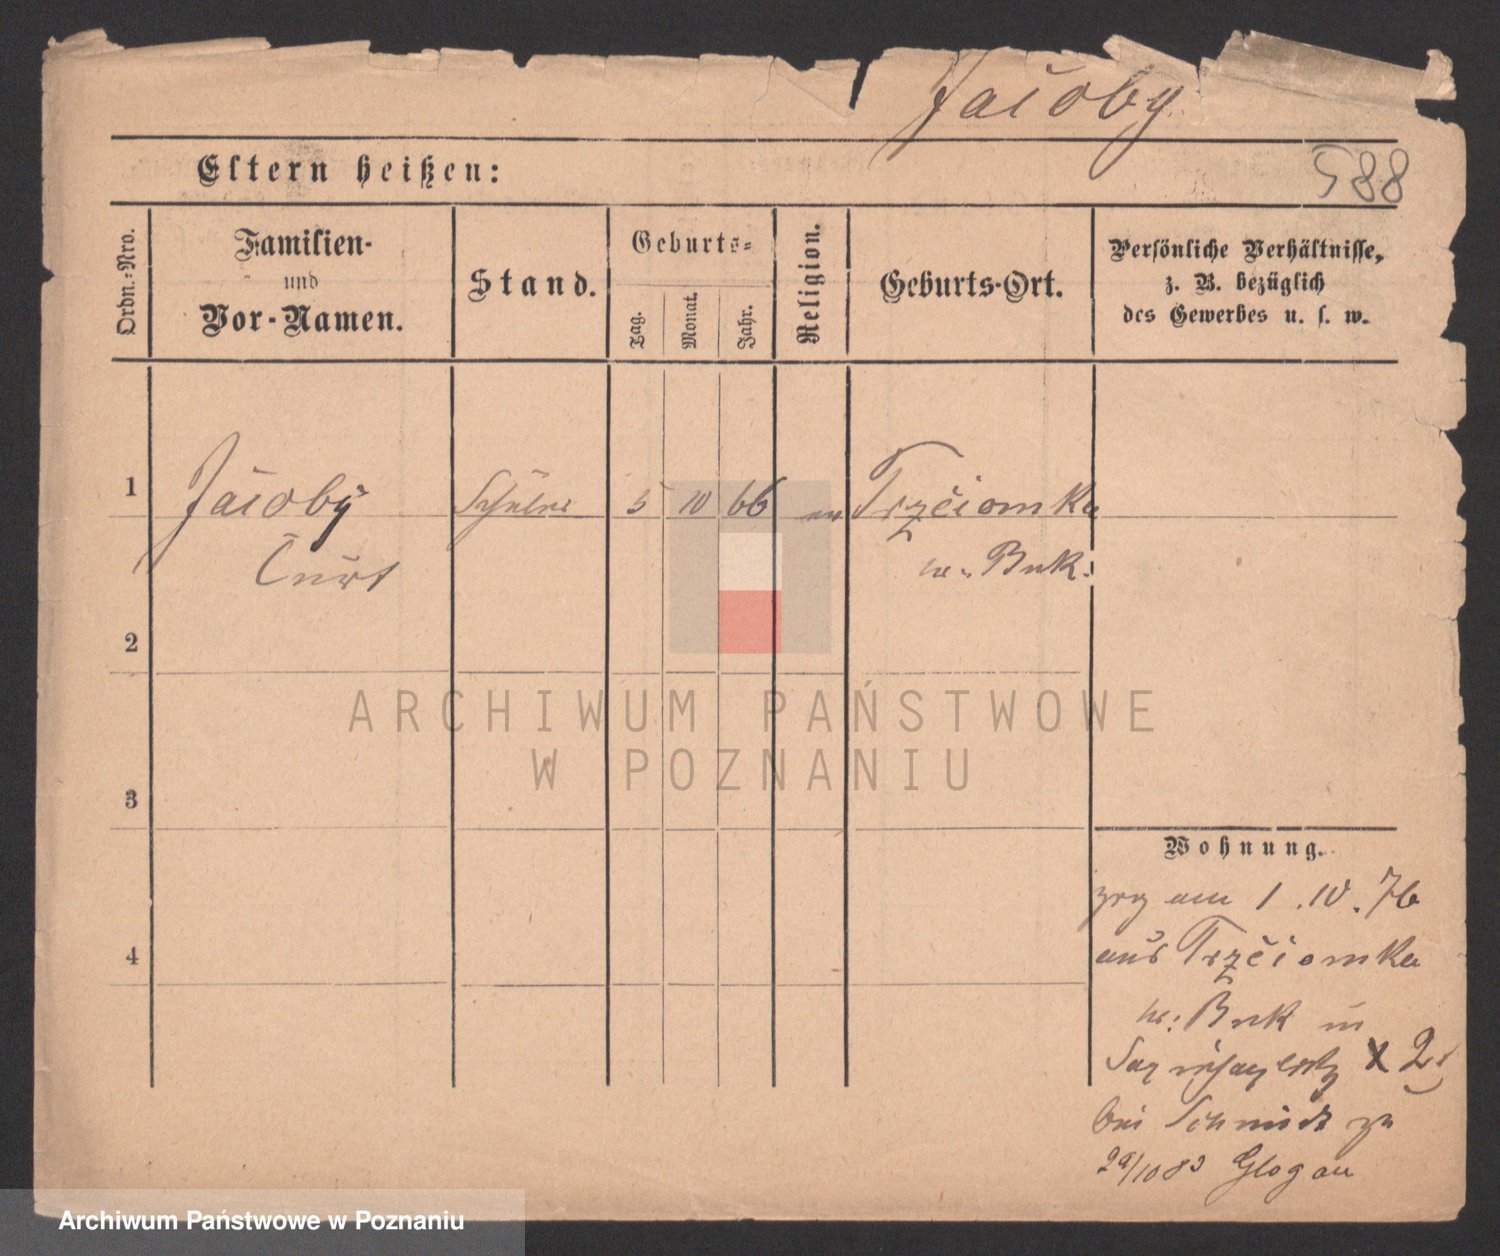 Jacoby
Eltern heißen:
588
Ordn.-Nro.
Familien-
und
Vor-Namen.
Stand.
Geburts-
Tag.
Monat.
Jahr.
Religion.
Geburts-Ort.
Persönliche Verhältnisse,
z. B. bezüglich
des Gewerbes u. s. w.
1
Jacoby Schüler 5 10 66 Trzcionka
Curt
Buk.
2
ARCHIWUM PAŃSTWOWE
W POZNANIU
3
Wohnung.
am 1.10.76
4
aus Trzcionka
Buk in
2
bei Schmidt
10 83 Glogau
Archiwum Państwowe w Poznaniu